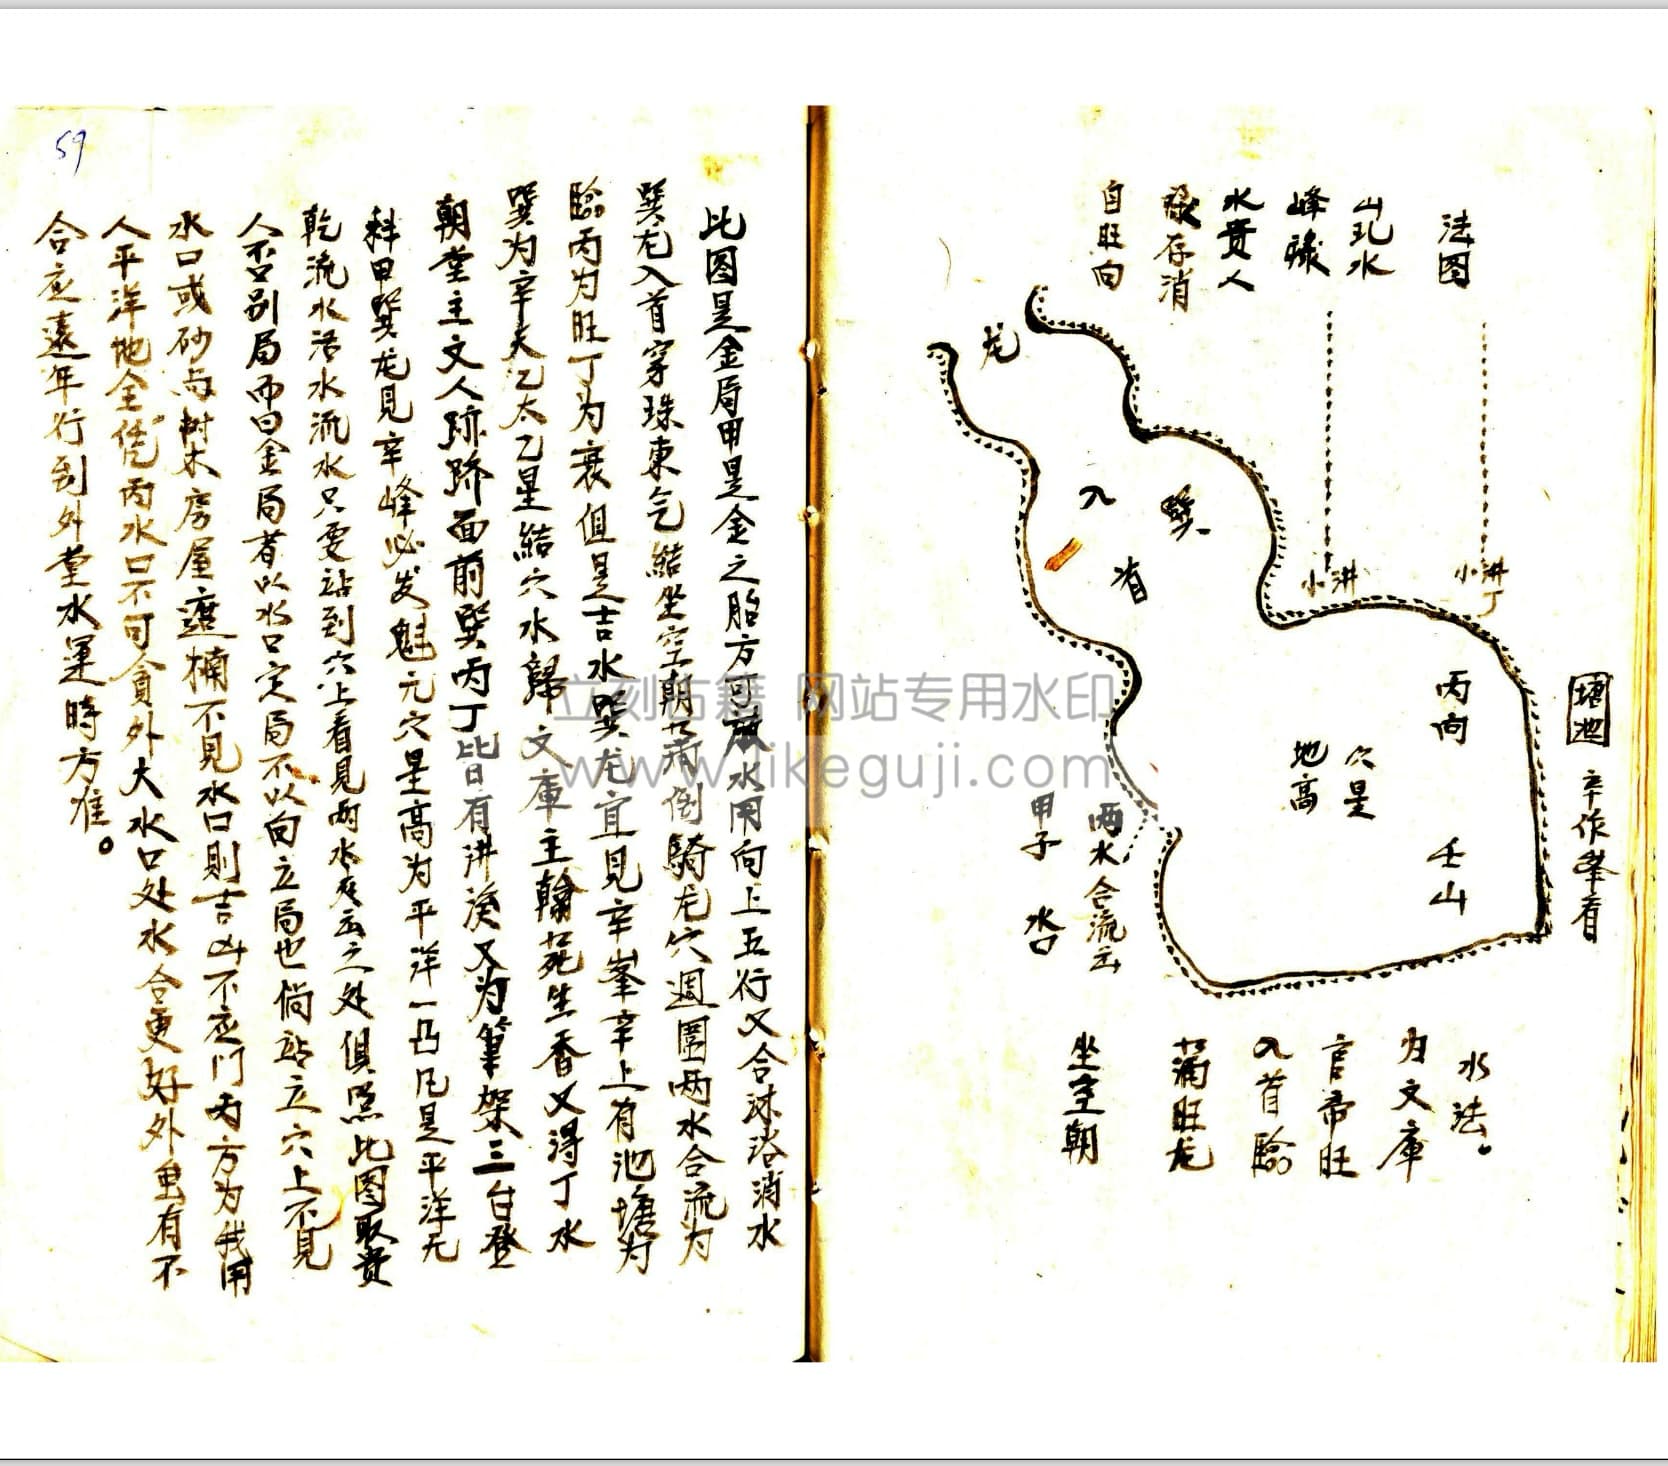 法图
山乳水
峰禄
水贵人
禄存消
自旺向
龙
入
巽
首
小洪
小洪
丁
丙向
壬山
穴是
地高
塘池
辛作峯看
两水合流云
甲子 水口
水法。
为文庫
官帝旺
入首臨
满旺龙
坐空朝
59
比图是金局甲是金之胎方可放水用向上五行又合沐浴消水
巽龙入首穿珠東气結坐空朝满倒騎龙穴週圍两水合流为
臨丙为旺丁为衰但是吉水巽龙宜見辛峯辛上有池塘为
巽为辛天乙太乙星結穴水歸文庫主翰苑生香又得丁水
朝堂主文人跡跡面前巽丙丁皆有洪溪又为筆架三台登
科甲巽龙見辛峰必发魁元穴是高为平洋一凸凡是平洋无
乾流水活水流水只要站到穴上看見两水交云之处俱照比图取貴
人不口别局而曰金局者以水口定局不以向立局也倘站立穴上不見
水口或砂与树木房屋遮楠不見水口則吉凶不应门内方为我用
人平洋地全凭内水口不可貪外大水口处水合更好外虽有不
合应遠年行到外堂水運時方准。
立刻古籍 网站专用水印
www.likeguji.com